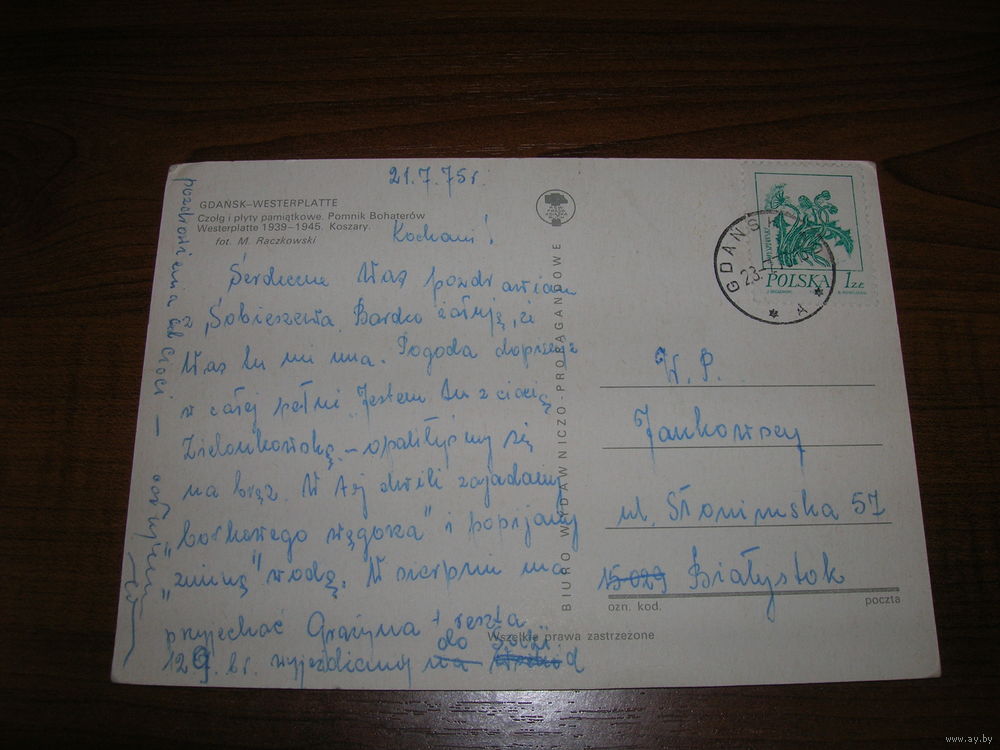 21.7.75 r.
GDAŃSK–WESTERPLATTE
Czołg i płyty pamiątkowe. Pomnik Bohaterów
Westerplatte 1939–1945. Koszary.
fot. M. Raczkowski
Kochani!
Serdecznie Was pozdrawiam
z Sobieszewa. Bardzo żałuję, że
Was tu nie ma. Pogoda dopisze
w całej pełni. Jestem tu z ciocią
Zielonkowską – opaliłyśmy się
na brąz. W tej chwili zajadamy
"borkowego węgorza" i popijamy
"zimną" wodą. W sierpniu ma
przyjechać Grażyna + reszta
12 9. br. wyjeżdżamy na do
pozdrowienia dla Cioci –
BIURO WYDAWNICZO-PROPAGANDOWE
Wszelkie prawa zastrzeżone
GDAŃSK
23
A
POLSKA 1 ZŁ
W. P.
Jankowscy
ul. Słonimska 57
15-029 Białystok
ozn. kod. poczta
www.ay.by